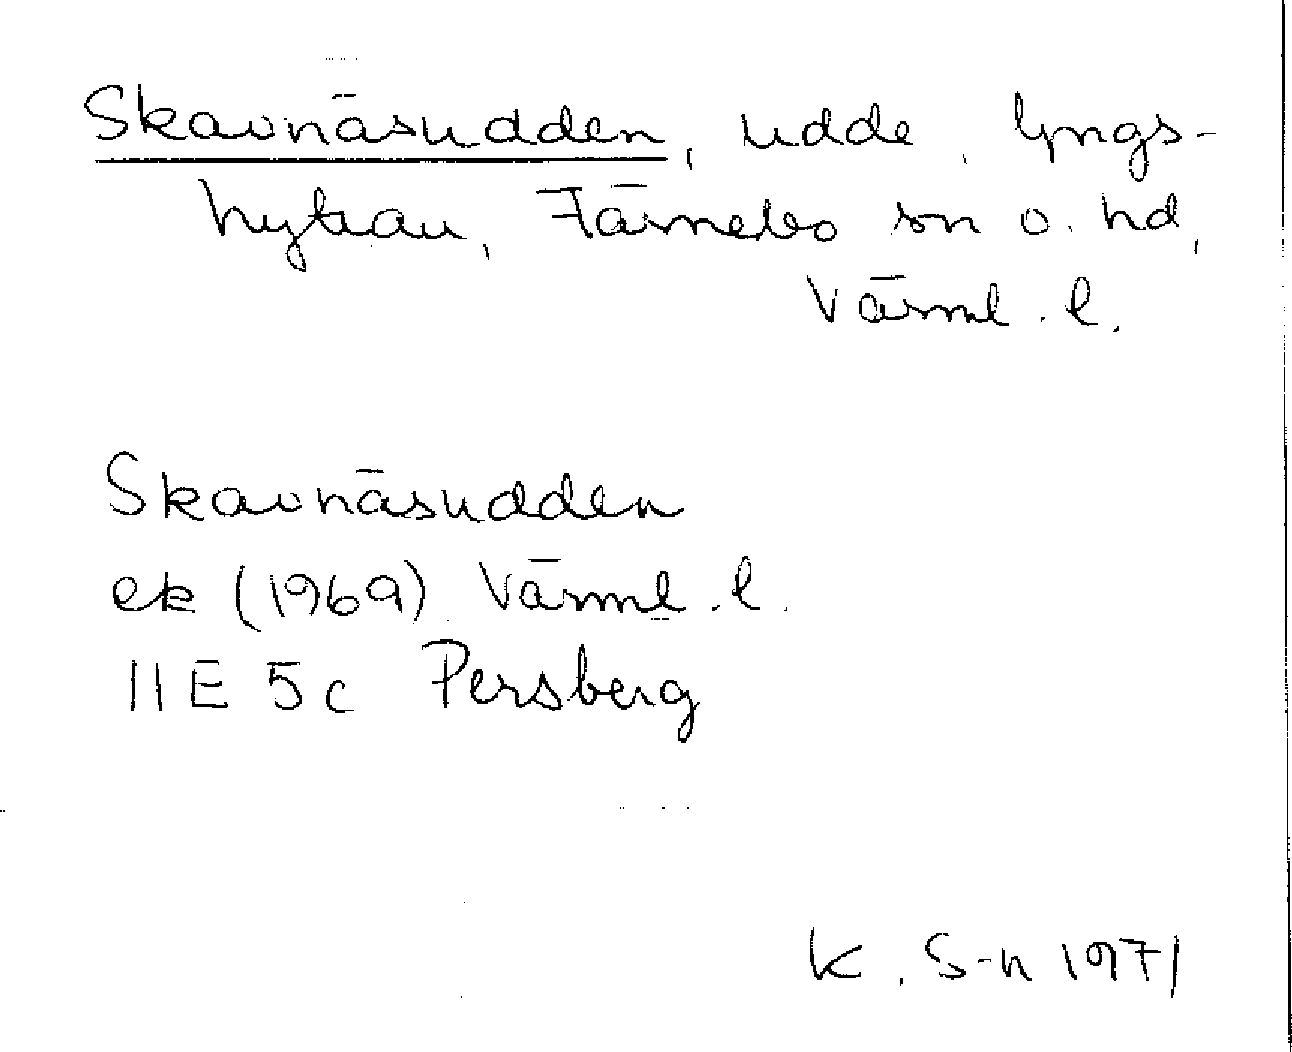 Skavnäsudden, udde, Yngs-
hyttan, Färnebo sn o. hd,
Värml. l.
Skavnäsudden
ek (1969) Värml. l.
11E 5c Persberg
K. S-n 1971